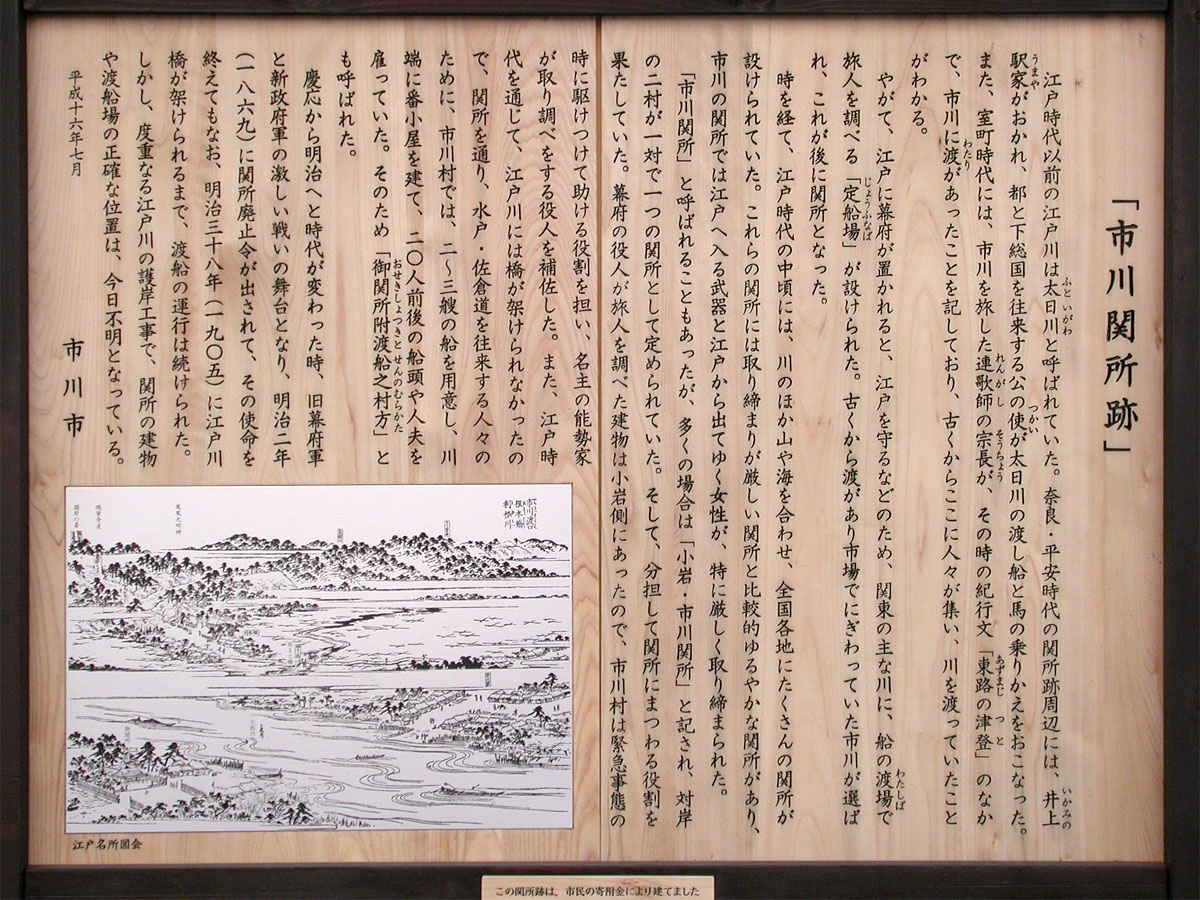 「市川関所跡」
江戸時代以前の江戸川は太日川と呼ばれていた。奈良・平安時代の関所跡周辺には、井上
駅家がおかれ、都と下総国を往来する公の使が太日川の渡し船と馬の乗りかえをおこなった。
また、室町時代には、市川を旅した連歌師の宗長が、その時の紀行文「東路の津登」のなか
で、市川に渡があったことを記しており、古くからここに人々が集い、川を渡っていたこと
がわかる。
やがて、江戸に幕府が置かれると、江戸を守るなどのため、関東の主な川に、船の渡場で
旅人を調べる「定船場」が設けられた。古くから渡があり市場でにぎわっていた市川が選ば
れ、これが後に関所となった。
時を経て、江戸時代の中頃には、川のほか山や海を合わせ、全国各地にたくさんの関所が
設けられていた。これらの関所には取り締まりが厳しい関所と比較的ゆるやかな関所があり、
市川の関所では江戸へ入る武器と江戸から出てゆく女性が、特に厳しく取り締まられた。
「市川関所」と呼ばれることもあったが、多くの場合は「小岩・市川関所」と記され、対岸
の二村が一対で一つの関所として定められていた。そして、分担して関所にまつわる役割を
果たしていた。幕府の役人が旅人を調べた建物は小岩側にあったので、市川村は緊急事態の
時に駆けつけて助ける役割を担い、名主の能勢家
が取り調べをする役人を補佐した。また、江戸時
代を通じて、江戸川には橋が架けられなかったの
で、関所を通り、水戸・佐倉道を往来する人々の
ために、市川村では、二〜三艘の船を用意し、川
端に番小屋を建て、二〇人前後の船頭や人夫を
雇っていた。そのため「御関所附渡船之村方」と
も呼ばれた。
慶応から明治へと時代が変わった時、旧幕府軍
と新政府軍の激しい戦いの舞台となり、明治二年
（一八六九）に関所廃止令が出されて、その使命を
終えてもなお、明治三十八年（一九〇五）に江戸川
橋が架けられるまで、渡船の運行は続けられた。
しかし、度重なる江戸川の護岸工事で、関所の建物
や渡船場の正確な位置は、今日不明となっている。
平成十六年七月
市川市
市川渡口
根本橋
利根川
鳳凰大明神
總寧寺道
國府の臺
江戸名所図会
この関所跡は、市民の寄附金により建てました